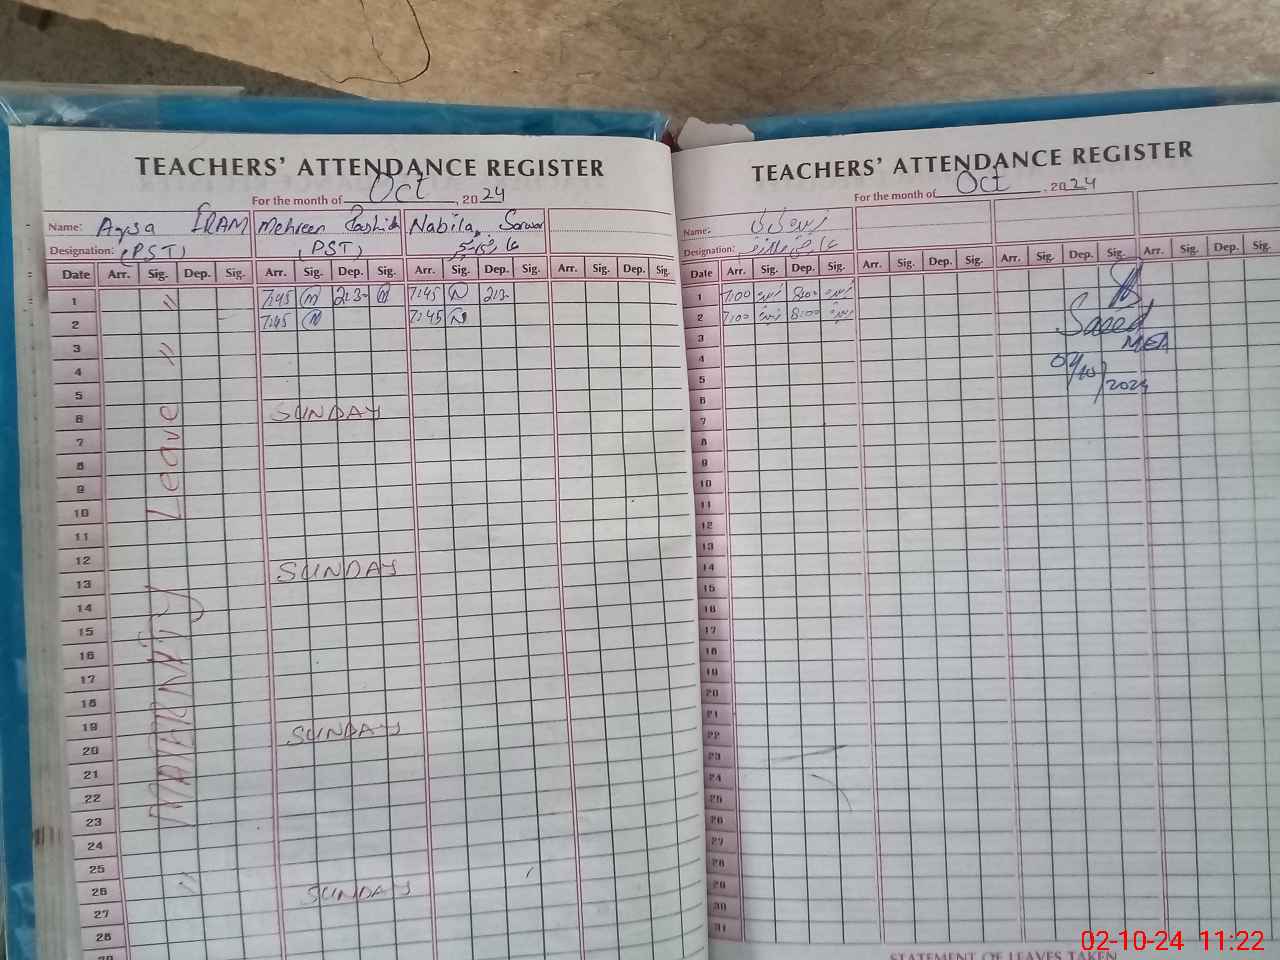 TEACHERS' ATTENDANCE REGISTER
For the month of Oct, 2024
Name: Aqsa IRAM Mehreen Rashid Nabila Sarwar
Designation: (PST) (PST)
Date Arr. Sig. Dep. Sig. Arr. Sig. Dep. Sig. Arr. Sig. Dep. Sig. Arr. Sig. Dep. Sig.
1 " 7:45 M 2:3- M 7:45 N 2:3-
2 7:45 M 7:45 N
3 "
4
5
6 SUNDAY
7
8
9
10
11
12
13 SUNDAY
14
15
16
17
18
19
20 SUNDAY
21
22
23
24
25
26 "
27 SUNDAY
28
MATERNITY Leave
TEACHERS' ATTENDANCE REGISTER
For the month of Oct, 2024
Name:
Designation:
Date Arr. Sig. Dep. Sig. Arr. Sig. Dep. Sig. Arr. Sig. Dep. Sig. Arr. Sig.
1 7:00 8:00
2 7:00 8:00
3
4
5
6
7
8
9
10
11
12
13
14
15
16
17
18
19
20
21
22
23
24
25
26
27
28
29
30
31
Saeed
MEA
02/10/2024
STATEMENT OF LEAVES TAKEN
02-10-24 11:22